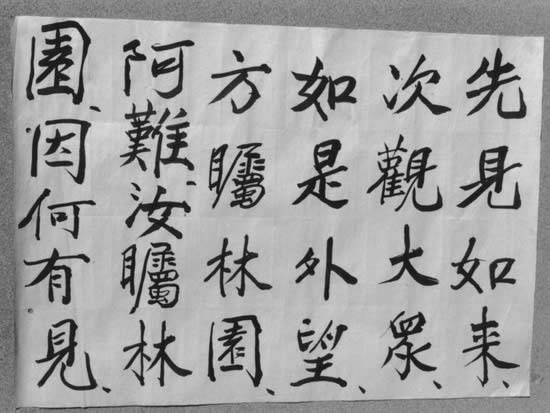 先見如来、
次觀大眾、
如是外望、
方矚林園、
阿難汝矚林
園、因何有見、